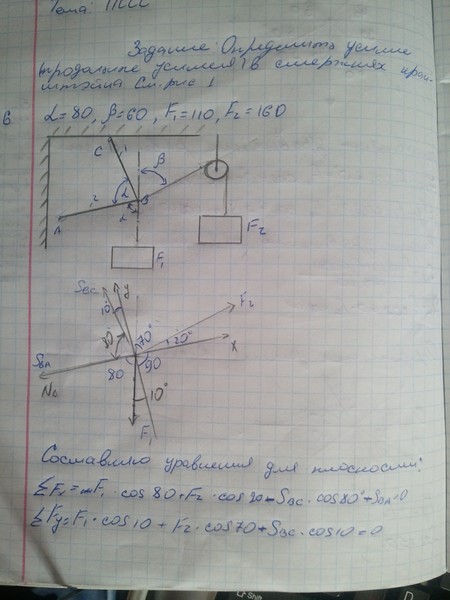 Тема: ПСС
Задание: Определить усилие
продольные усилия в стержнях крон-
штейна См. рис 1
В α=80, β=60, F₁=110, F₂=160
C 1 β
2 α
A B
α F₂
F₁
SBC y
10° F₂
70°
80 20° X
SBA 90
N₂ 80
10°
F₁
Составляю уравнения для плоскости:
· cos 80 + F₂ · cos 20 - SBC · cos 80° + SBA = 0
ΣFy = F₁ · cos 10 + F₂ · cos 70 + SBC · cos 10 = 0
Shift